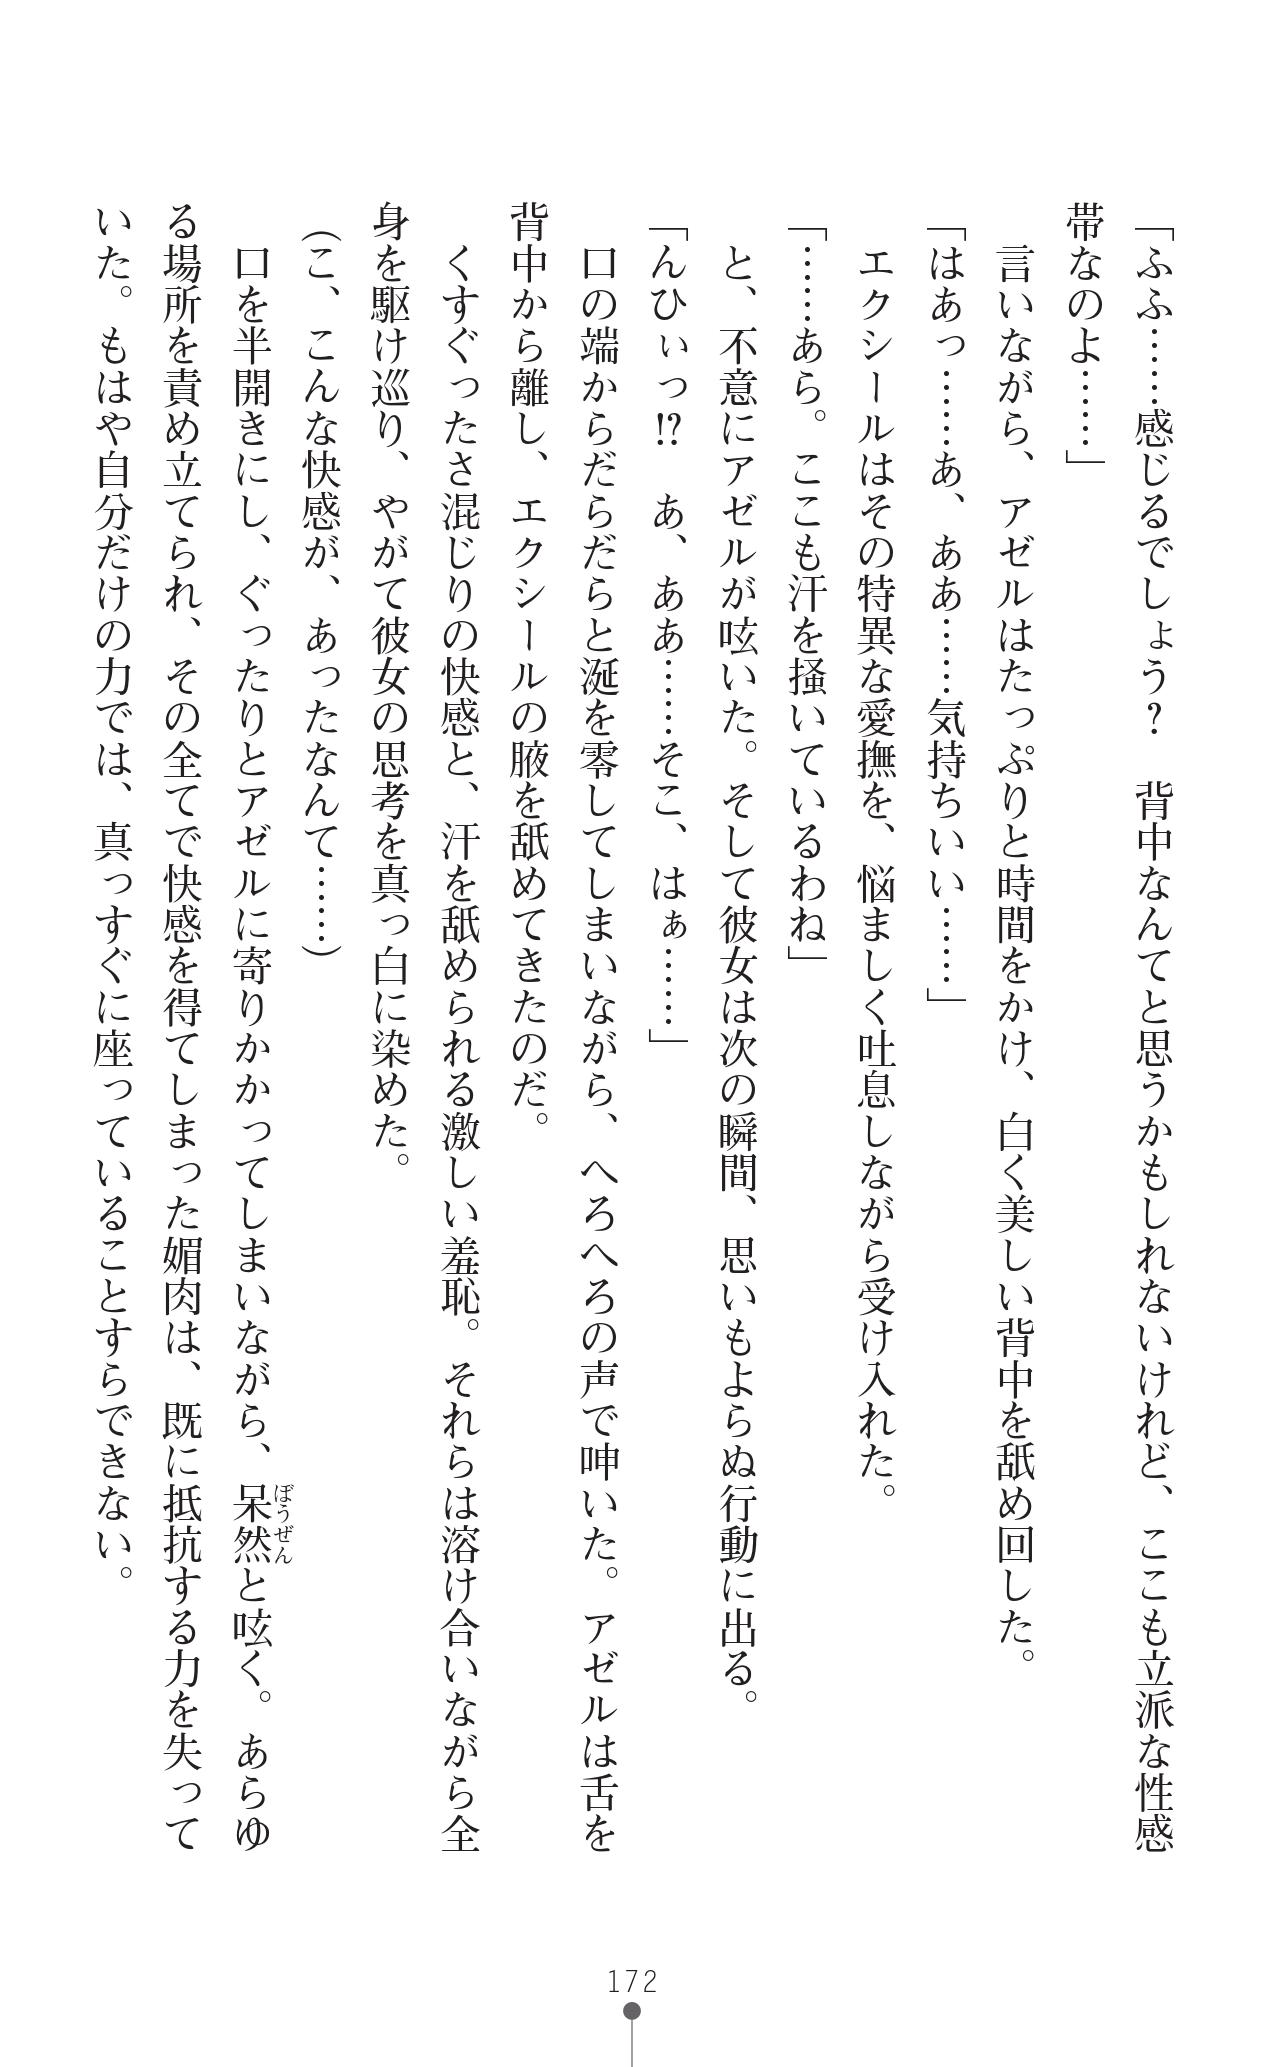 「ふふ……感じるでしょう？　背中なんてと思うかもしれないけれど、ここも立派な性感
帯なのよ……」
　言いながら、アゼルはたっぷりと時間をかけ、白く美しい背中を舐め回した。
「はあっ……あ、ああ……気持ちいい……」
　エクシールはその特異な愛撫を、悩ましく吐息しながら受け入れた。
「……あら。ここも汗を掻いているわね」
　と、不意にアゼルが呟いた。そして彼女は次の瞬間、思いもよらぬ行動に出る。
「んひぃっ!?　あ、ああ……そこ、はぁ……」
　口の端からだらだらと涎を零してしまいながら、へろへろの声で呻いた。アゼルは舌を
背中から離し、エクシールの腋を舐めてきたのだ。
　くすぐったさ混じりの快感と、汗を舐められる激しい羞恥。それらは溶け合いながら全
身を駆け巡り、やがて彼女の思考を真っ白に染めた。
（こ、こんな快感が、あったなんて……）
　口を半開きにし、ぐったりとアゼルに寄りかかってしまいながら、呆然と呟く。あらゆ
ぼうぜん
る場所を責め立てられ、その全てで快感を得てしまった媚肉は、既に抵抗する力を失って
いた。もはや自分だけの力では、真っすぐに座っていることすらできない。
172